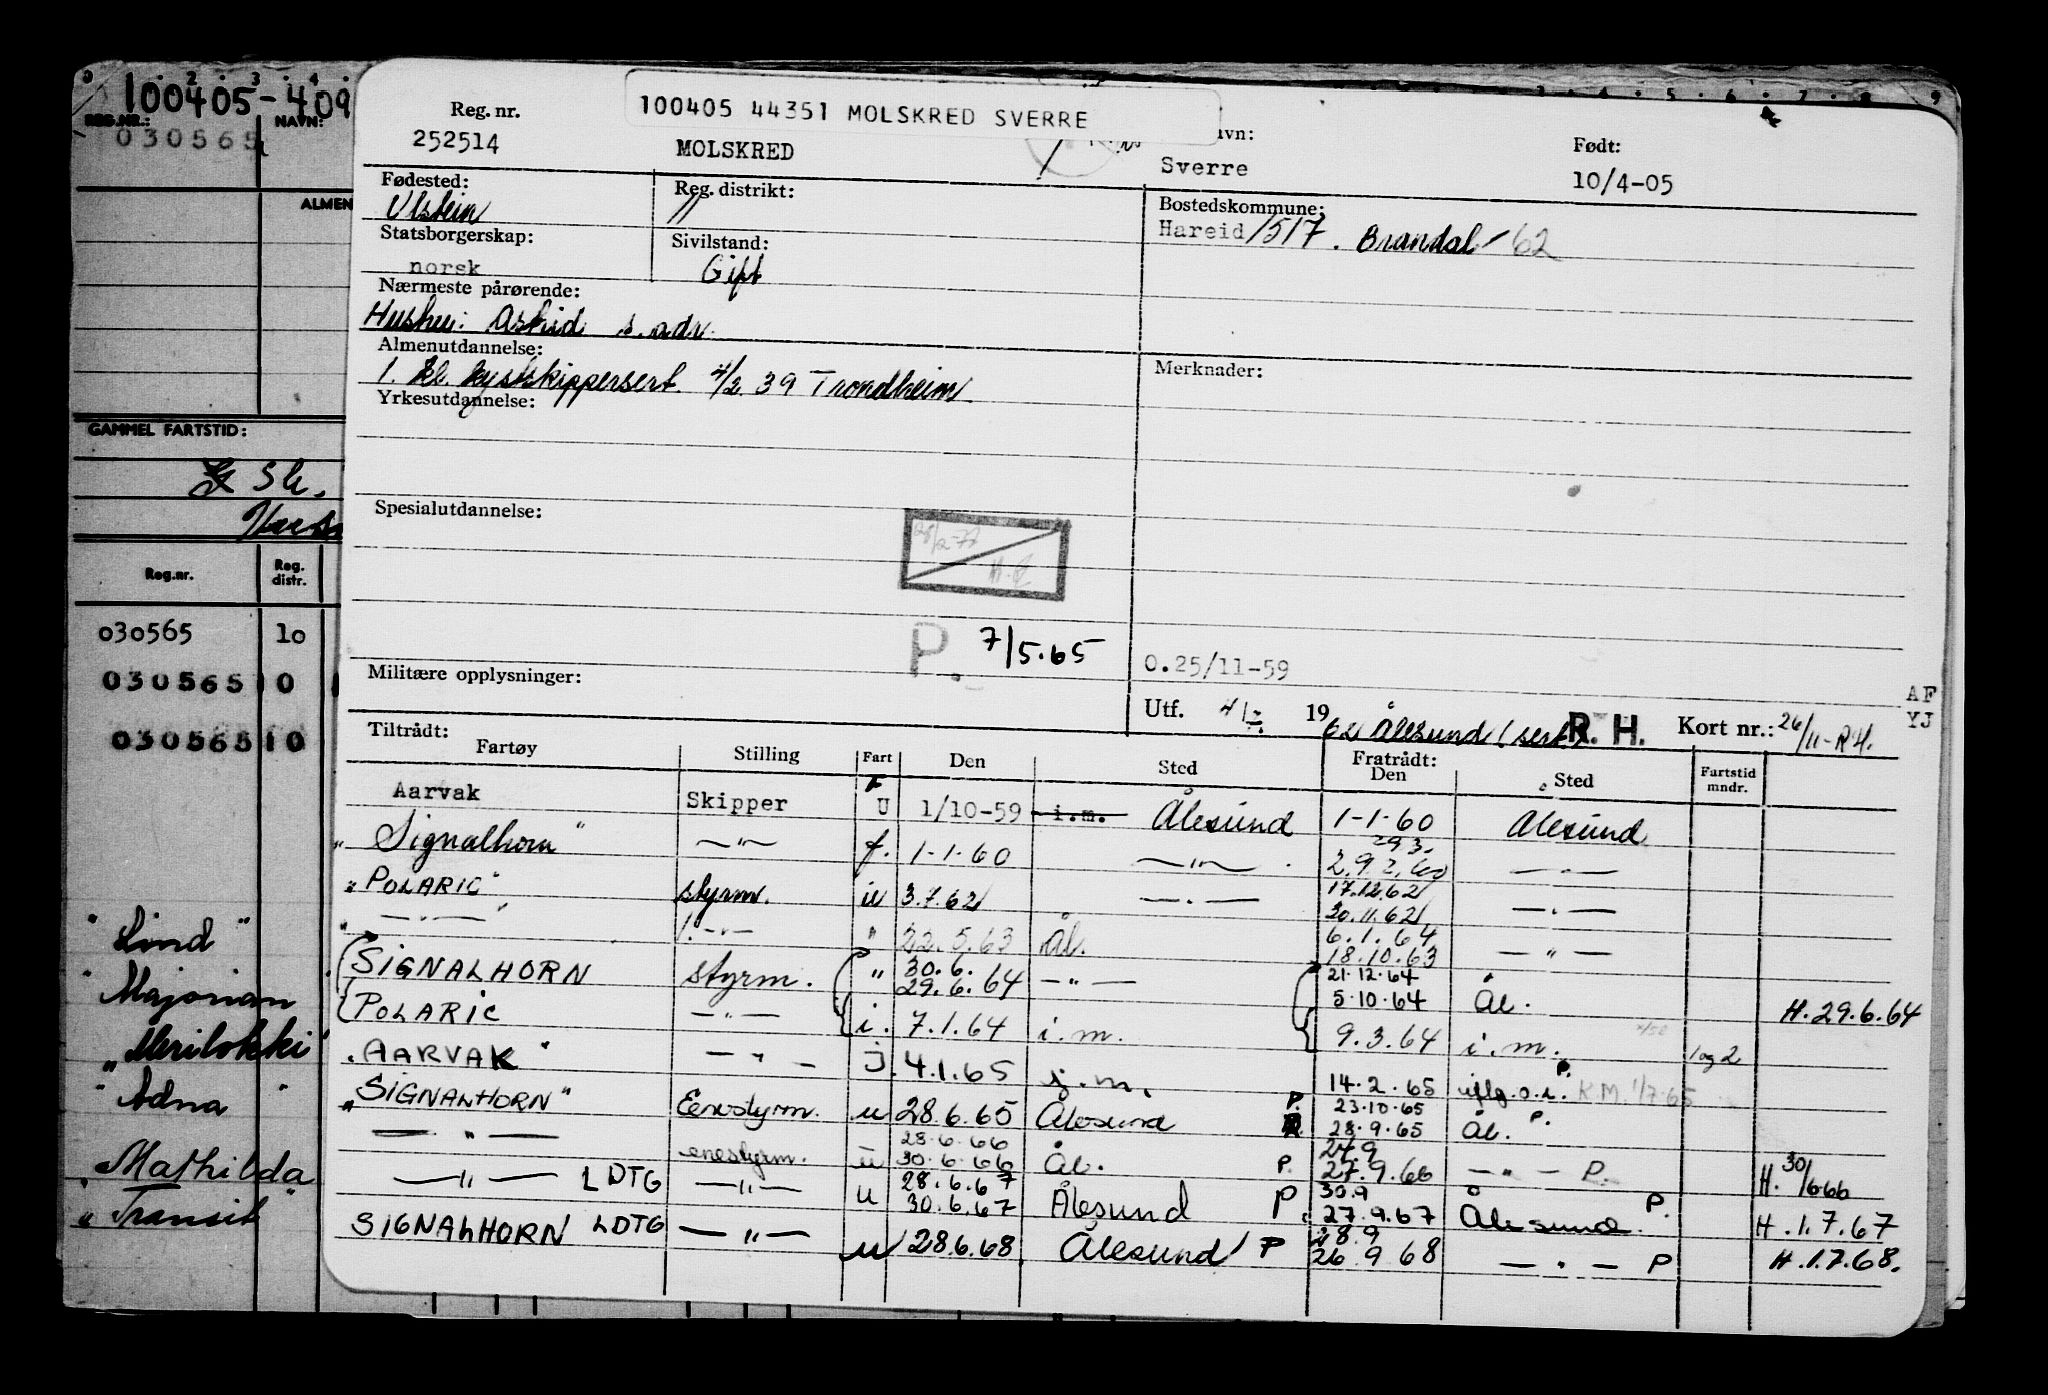 100405-409
REG.NR.: NAVN:
030565
ALMEN
GAMMEL FARTSTID:
Sk.
Reg.nr. Reg. distr.
030565 10
030565 10
030565 10
"Lind"
"Majorian
"Merilokki"
"Adna"
Mathilda
"Transit"
100405 44351 MOLSKRED SVERRE
Reg. nr. avn: Født:
252514 MOLSKRED Sverre 10/4-05
Fødested: Reg. distrikt: Bostedskommune:
Ulstein " Hareid/517. Brandal-62
Statsborgerskap: Sivilstand:
norsk Gift
Nærmeste pårørende:
Hustru: Astrid s. adr.
Almenutdannelse: Merknader:
1. kl. kystskippersert. 4/2 39 Trondheim
Yrkesutdannelse:
Spesialutdannelse:
28/2-77
H.
P. 7/5.65 0.25/11-59
Militære opplysninger: AF
Utf. 1962 Ålesund (sert) R. H. Kort nr.: 26/11-R.H. YJ
Tiltrådt: Fratrådt:
Fartøy Stilling Fart Den Sted Den Sted Fartstid mndr.
Aarvak Skipper F U 1/10-59 i.m. Ålesund 1-1-60 Ålesund
"Signalhorn" —"— f. 1-1-60 —"— . 29.3. 2.9.2.60 —"—
"POLARIC" styrm. u 3.7.62 —"— 17.12.62 30.11.62 —"—
" —"— " 1. —"— " 22.5.63 Ål. 6.1.64 18.10.63 —"—
SIGNALHORN styrm. " 30.6. 29.6.64 —"— 21.12.64 5.10.64 Ål. H. 29.6.64
POLARIC —"— i. 7.1.64 i.m. 9.3.64 i.m. 1og2
"AARVAK" —"— j. 4.1.65 j.m. 14.2.65 P. uflg.o.l. K.M. 1/7-65
"SIGNALHORN" Enestyrm. u 28.6.65 Ålesund P. 23.10.65 28.9.65 Ål. P.
—"— enestyrm. u 28.6.66 30.6.66 Ål. P. 27.9 27.9.66 —"— P. H. 30/6 66
—"— LDTG —"— u 28.6.67 30.6.67 Ålesund P. 30.9 27.9.67 Ålesund. P. H. 1.7.67
SIGNALHORN LDTG —"— u 28.6.68 Ålesund P 28.9 26.9.68 —"— P H. 1.7.68.